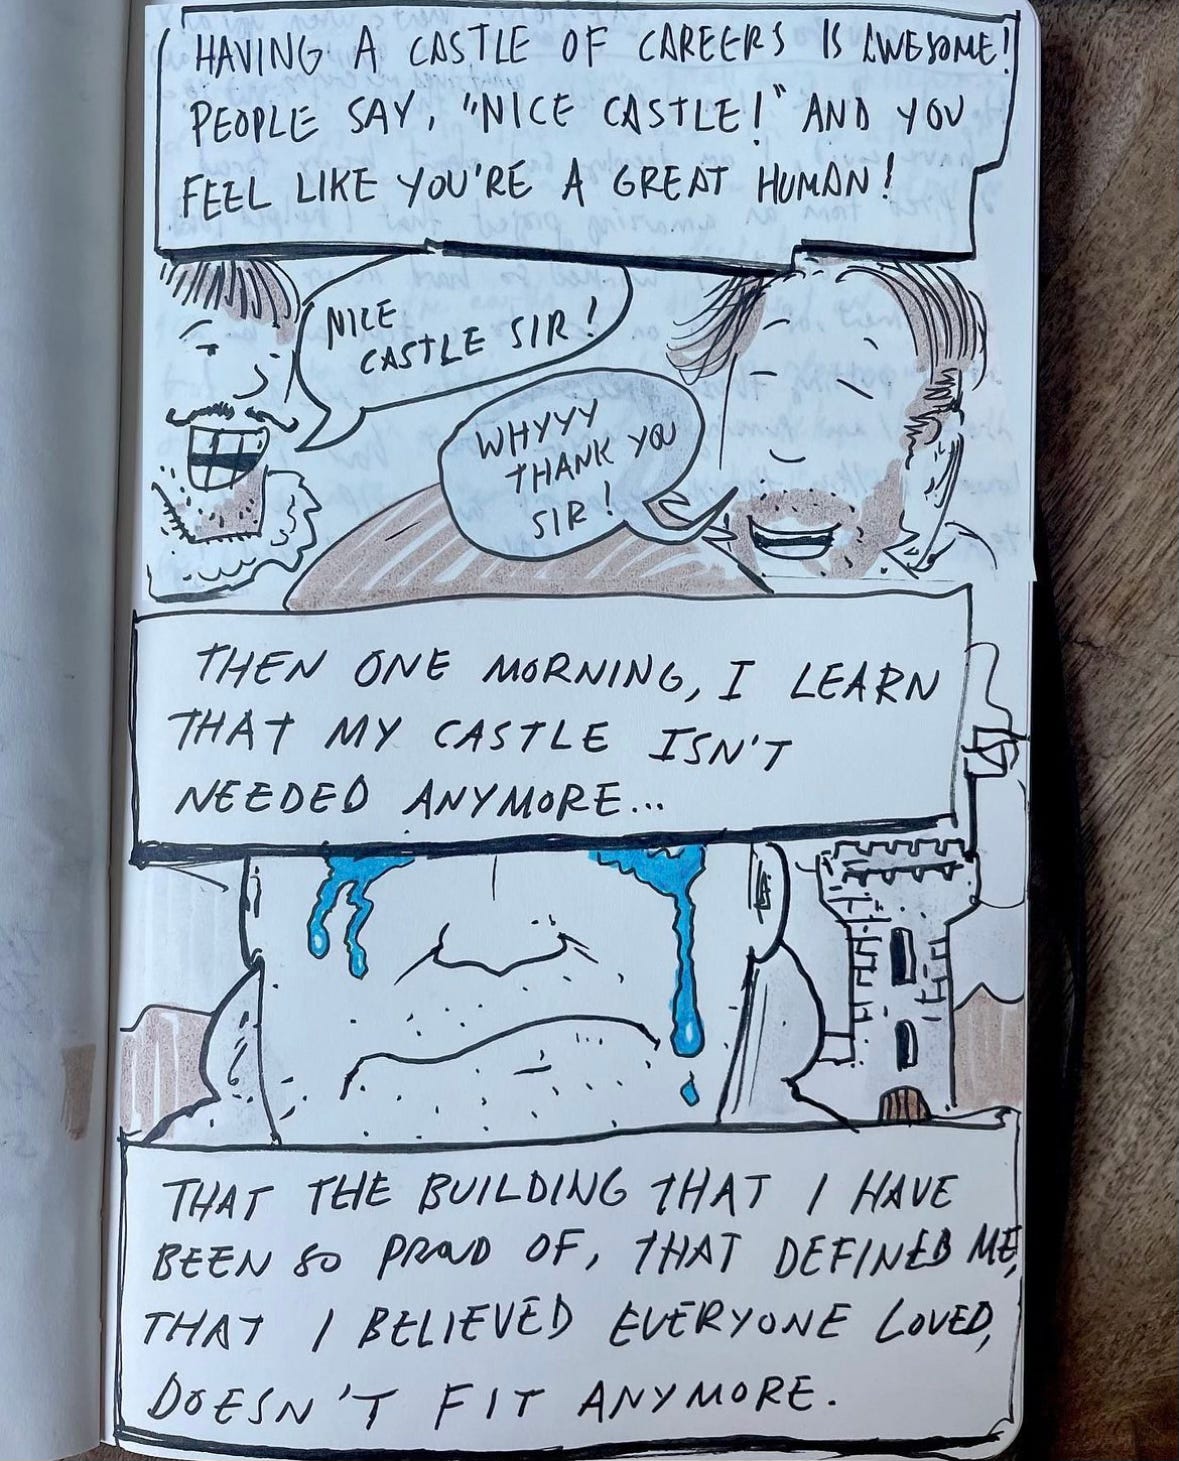 HAVING A CASTLE OF CAREERS IS AWESOME!
PEOPLE SAY, "NICE CASTLE!" AND YOU
FEEL LIKE YOU'RE A GREAT HUMAN!
NICE
CASTLE SIR!
WHYYY
THANK YOU
SIR!
THEN ONE MORNING, I LEARN
THAT MY CASTLE ISN'T
NEEDED ANYMORE...
THAT THE BUILDING THAT I HAVE
BEEN SO PROUD OF, THAT DEFINED ME,
THAT I BELIEVED EVERYONE LOVED,
DOESN'T FIT ANYMORE.